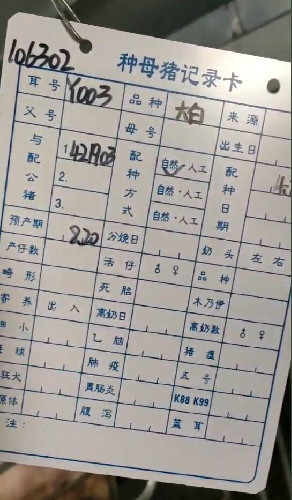 106302
种母猪记录卡
耳号 Y003 品种 大白 来源
父号 母号 出生日
与配公猪 配种方式 配种日期
1. 自然✓人工
2. 自然·人工
3. 自然·人工
预产期 820 分娩日 奶头 左 右
产仔数 活仔 ♂ ♀ 品种
畸形 死胎 木乃伊
寄养 出 入 离奶日 离奶数 ♂ ♀
细小 乙脑 猪瘟
链球 肺疫 五号
狂犬 胃肠炎 K88 K99
原体 腹泻 蓝耳
注：